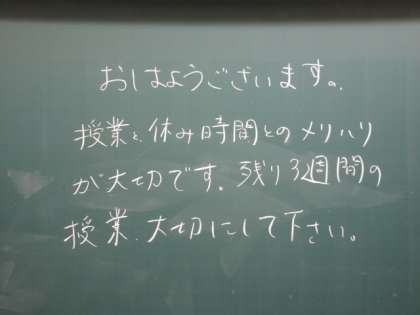 おはようございます。
授業と、休み時間とのメリハリ
が大切です。残り3週間の
授業、大切にして下さい。